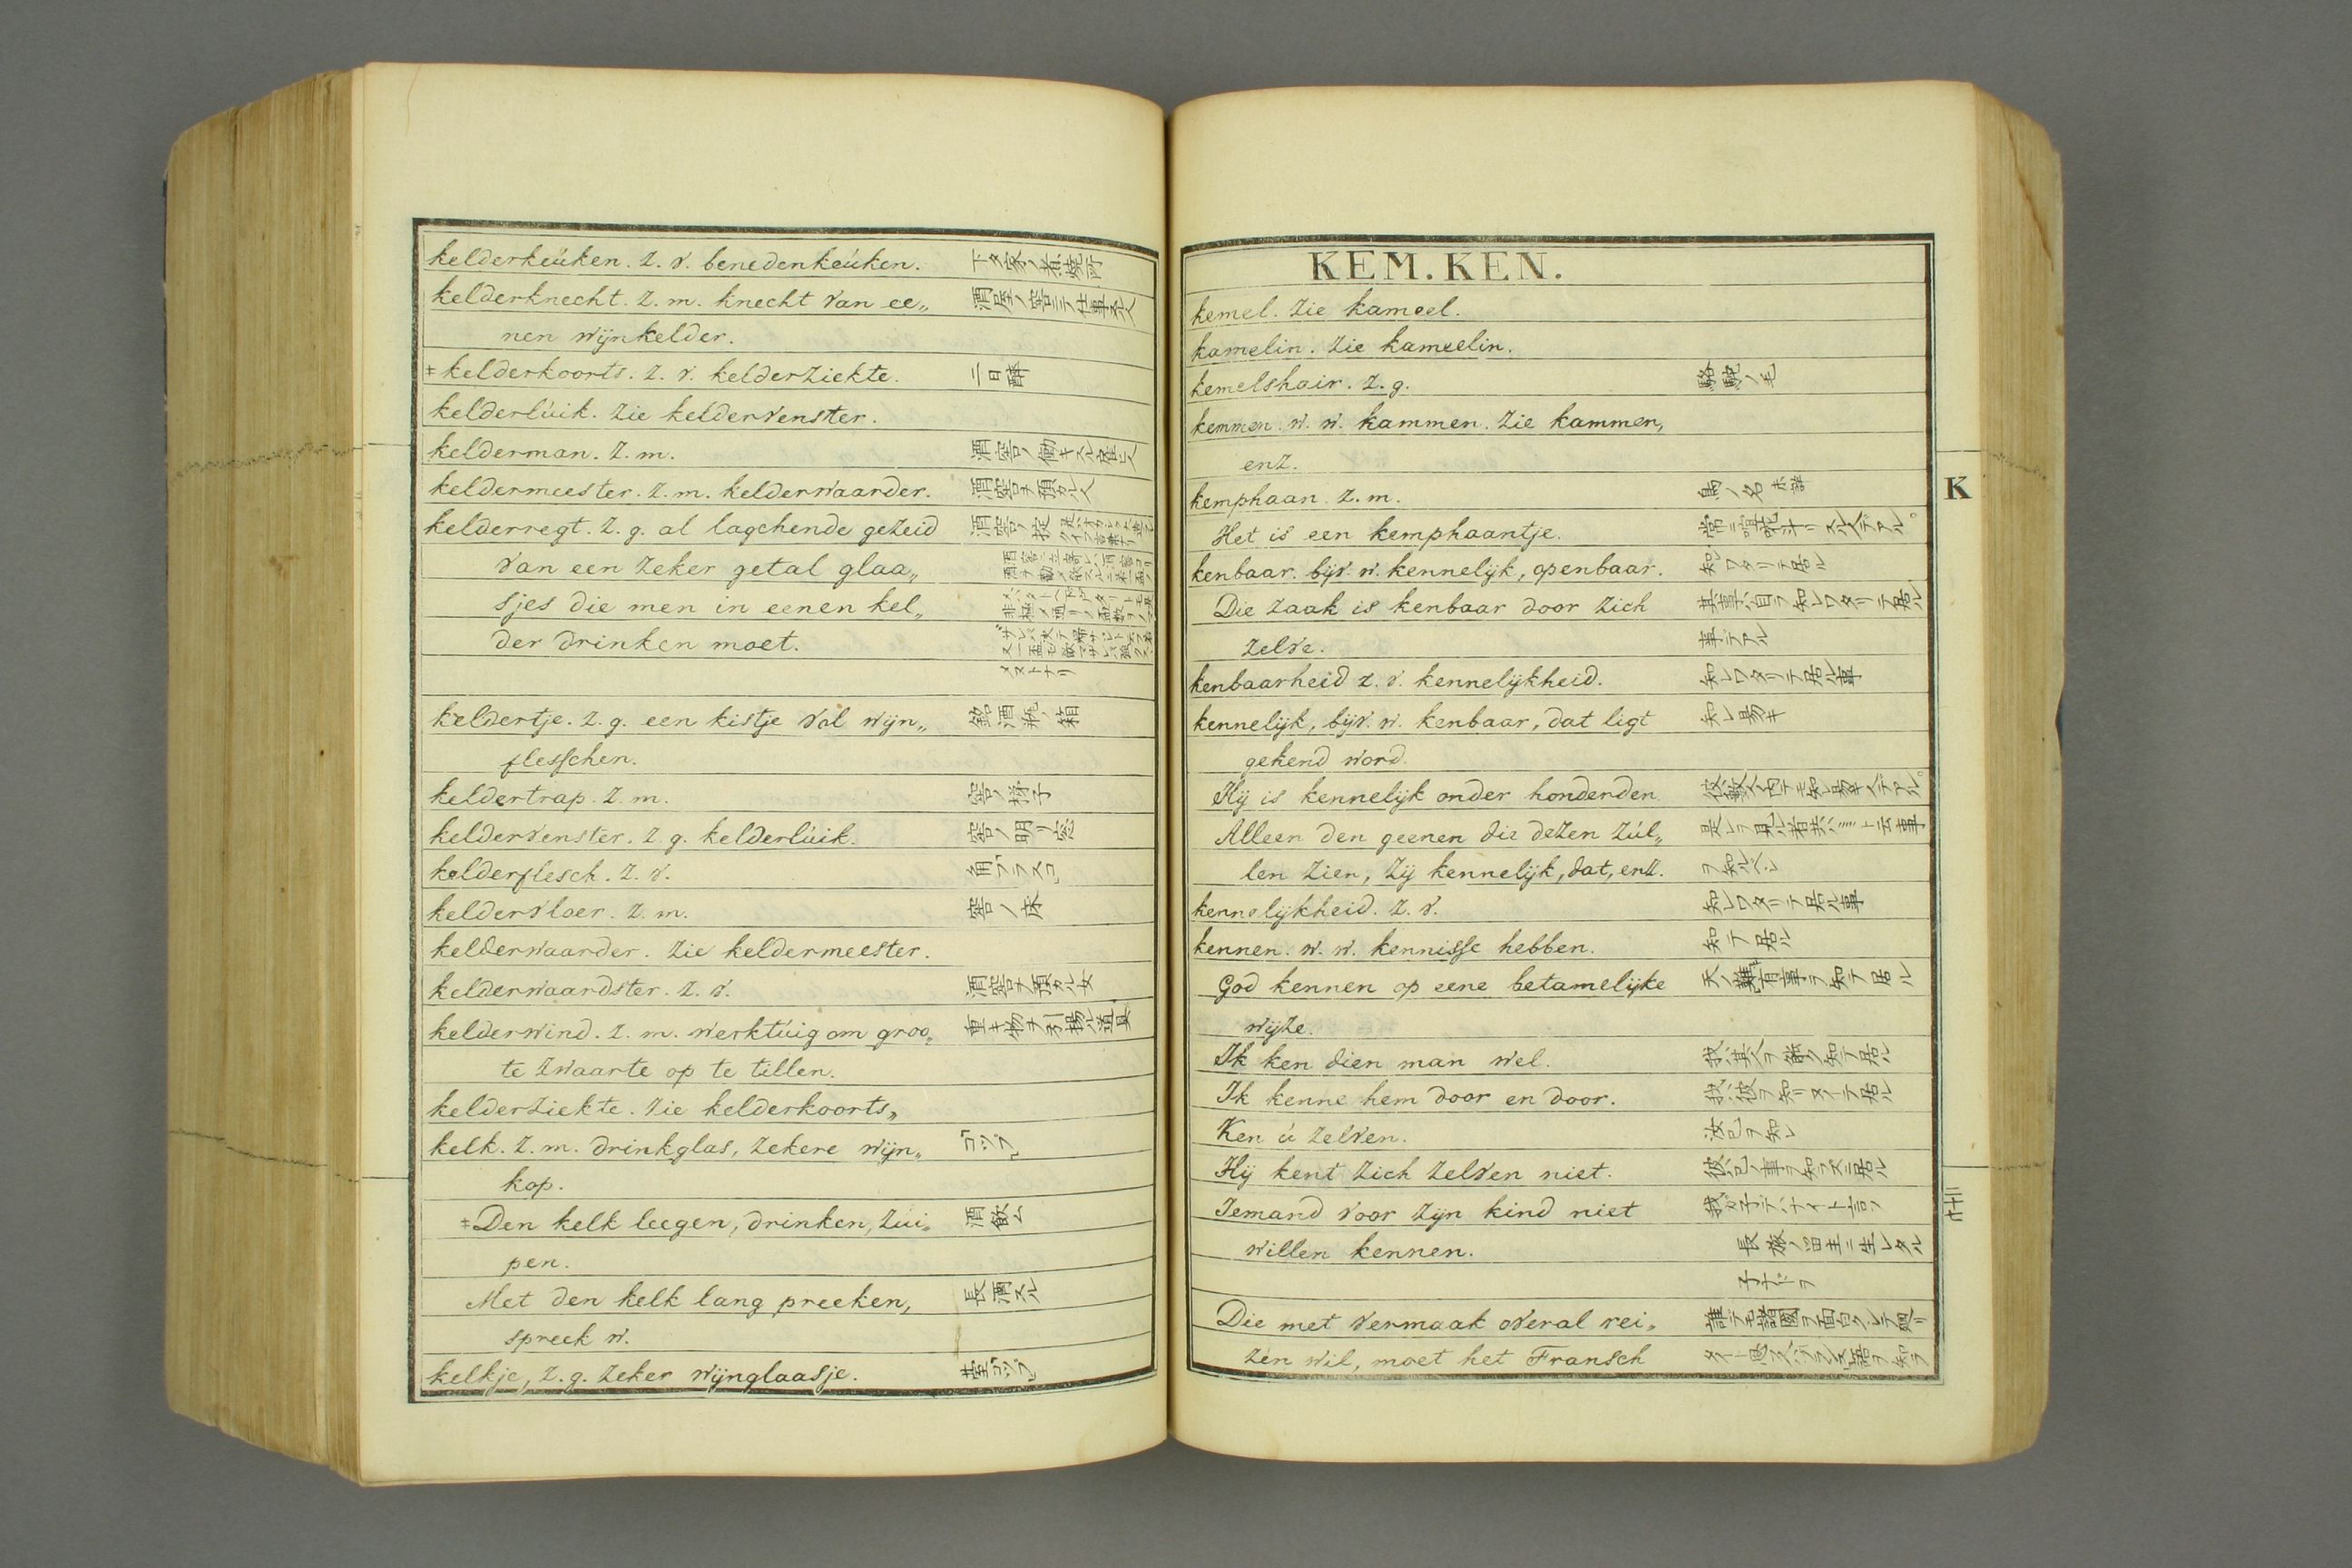 kelderkeúken. z. v. benedenkeúken. 下タ家ノ煮焼所
kelderknecht. z. m. knecht van ee„ 酒屋ノ窖ニテ仕事スル人
nen wijnkelder.
‡kelderkoorts. z. v. kelderziekte. 二日酔
kelderlúik. Zie keldervenster.
kelderman. z. m. 酒窖ノ働キスル雇ヒ人
keldermeester. z. m. kelderwaarder. 酒窖ヲ預カル人
kelderregt. z. g. al lagchende gezeid 酒窖ノ掟
van een zeker getal glaa„
sjes die men in eenen kel„
der drinken moet.
メストナリ
keldertje. z. g. een kistje vol wijn„ 銘酒瓶ノ箱
flesschen.
keldertrap. z. m. 窖ノ梯子
keldervenster. z. g. kelderlúik. 窖ノ明リ窓
kelderflesch. z. v. 角フラスコ
keldervloer. z. m. 窖ノ床
kelderwaarder. Zie keldermeester.
kelderwaardster. z. v. 酒窖ヲ預カル女
kelderwind. z. m. werktúig om groo„ 重キ物ヲ引揚ル道具
te zwaarte op te tillen.
kelderziekte. Zie kelderkoorts„
kelk. z. m. drinkglas, zekere wijn„ コップ
kop.
‡Den kelk leegen, drinken, zúi„ 酒飲ム
pen.
Met den kelk lang preeken, 長酒スル
spreek w.
kelkje, z. g. zeker wijnglaasje. コップ
KEM. KEN.
kemel. Zie kameel.
kamelin. Zie kameelin.
kemelshair. z. g. 駱駝ノ毛
kemmen. w. w. kammen. Zie kammen,
enz.
kemphaan. z. m. 鳥ノ名
K
Het is een kemphaantje. 常ニ喧𠵅斗リスル人デアル。
kenbaar. bijv. w. kennelijk, openbaar. 知レワタリテ居ル
Die zaak is kenbaar door zich 其事ハ自ラ知レワタリテ居ル
zelve. 事デアル
kenbaarheid z. v. kennelijkheid. 知レワタリテ居ル事
kennelijk, bijv. w. kenbaar, dat ligt 知レ易キ
gekend word.
Hij is kennelijk onder honderden 彼ハ数人ノ内デモ知レ易キ人デアル。
Alleen den geenen die dezen zúl„ 是レヲ見ル者共ハ云事
len zien, zij kennelijk, dat, enz. ヲ知ルベシ
kennelijkheid. z. v. 知レワタリテ居ル事
kennen. w. w. kennisse hebben. 知テ居ル
God kennen op eene betamelijke 天ノ難有事ヲ知テ居ル
wijze.
Ik ken dien man wel. 我ハ其人ヲ能ク知テ居ル
Ik kenne hem door en door. 我ハ彼ヲ知リヌイテ居ル
Ken ú zelven. 汝己ヲ知レ
Hij kent zich zelven niet. 彼ハ己ノ事ヲ知ラズニ居ル
Iemand voor zijn kind niet 我ガ子デハナイト言フ
willen kennen. 長旅ノ留主ニ生レタル
子ナドヲ
Die met vermaak overal rei„ 誰デモ諸國ヲ面白クシテ廻リ
zen wil, moet het Fransch タイト思フ人ハフランス語ヲ知ラ